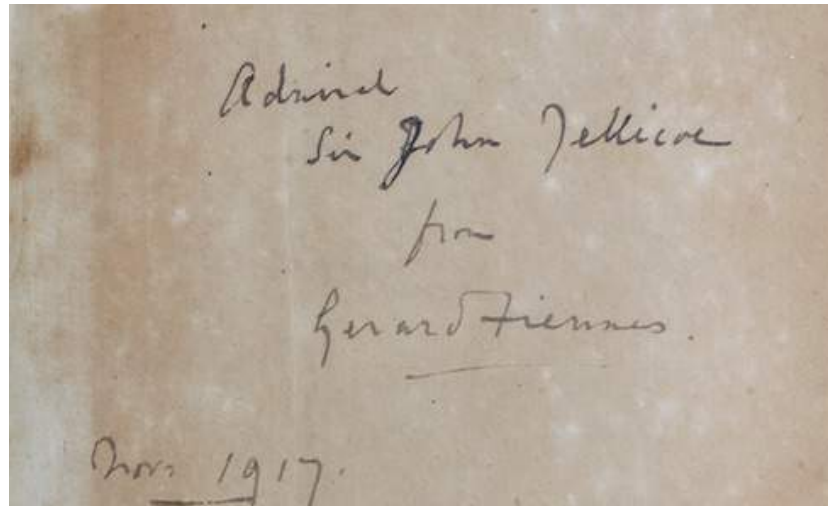 Admiral
Sir John Jellicoe
from
Gerard Fiennes.
Nov. 1917.